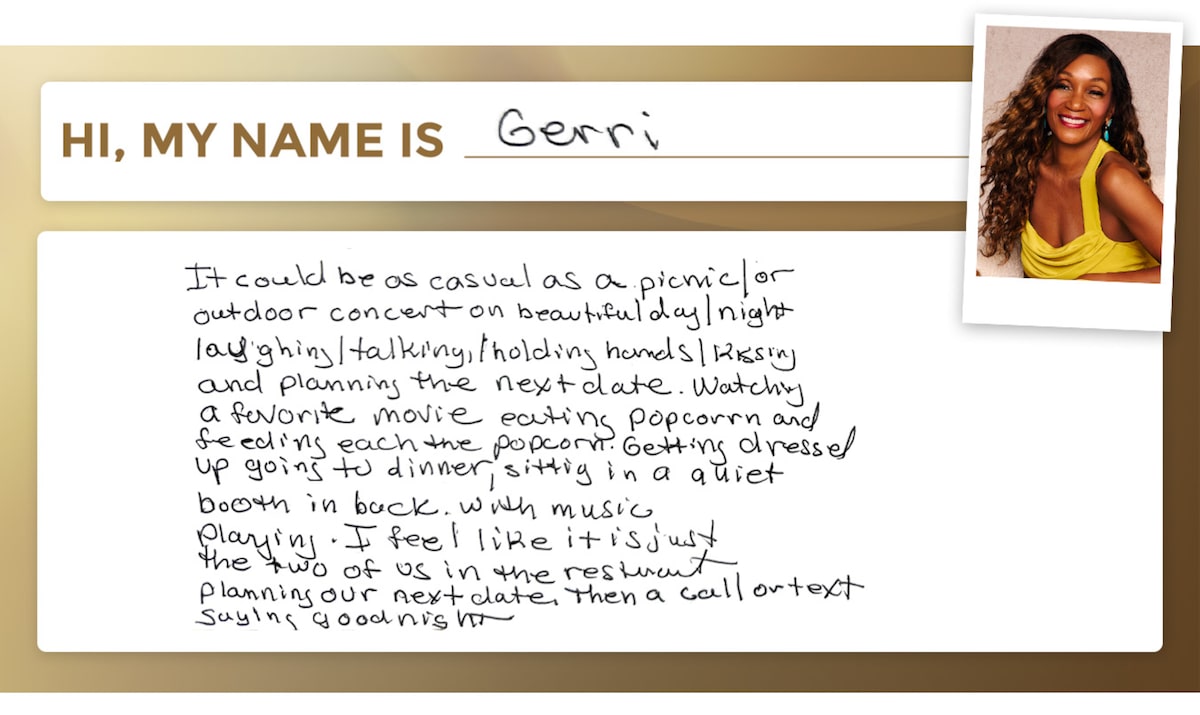 HI, MY NAME IS Gerri
It could be as casual as a picnic/or
outdoor concert on beautiful day/night
laughing/talking,/holding hands/kissing
and planning the next date. Watching
a favorite movie eating popcorrn and
feeding each the popcorn. Getting dressed
up going to dinner, sittig in a quiet
booth in back. with music
playing. I feel like it is just
the two of us in the resturant
planning our next date. Then a call or text
saying goodnight